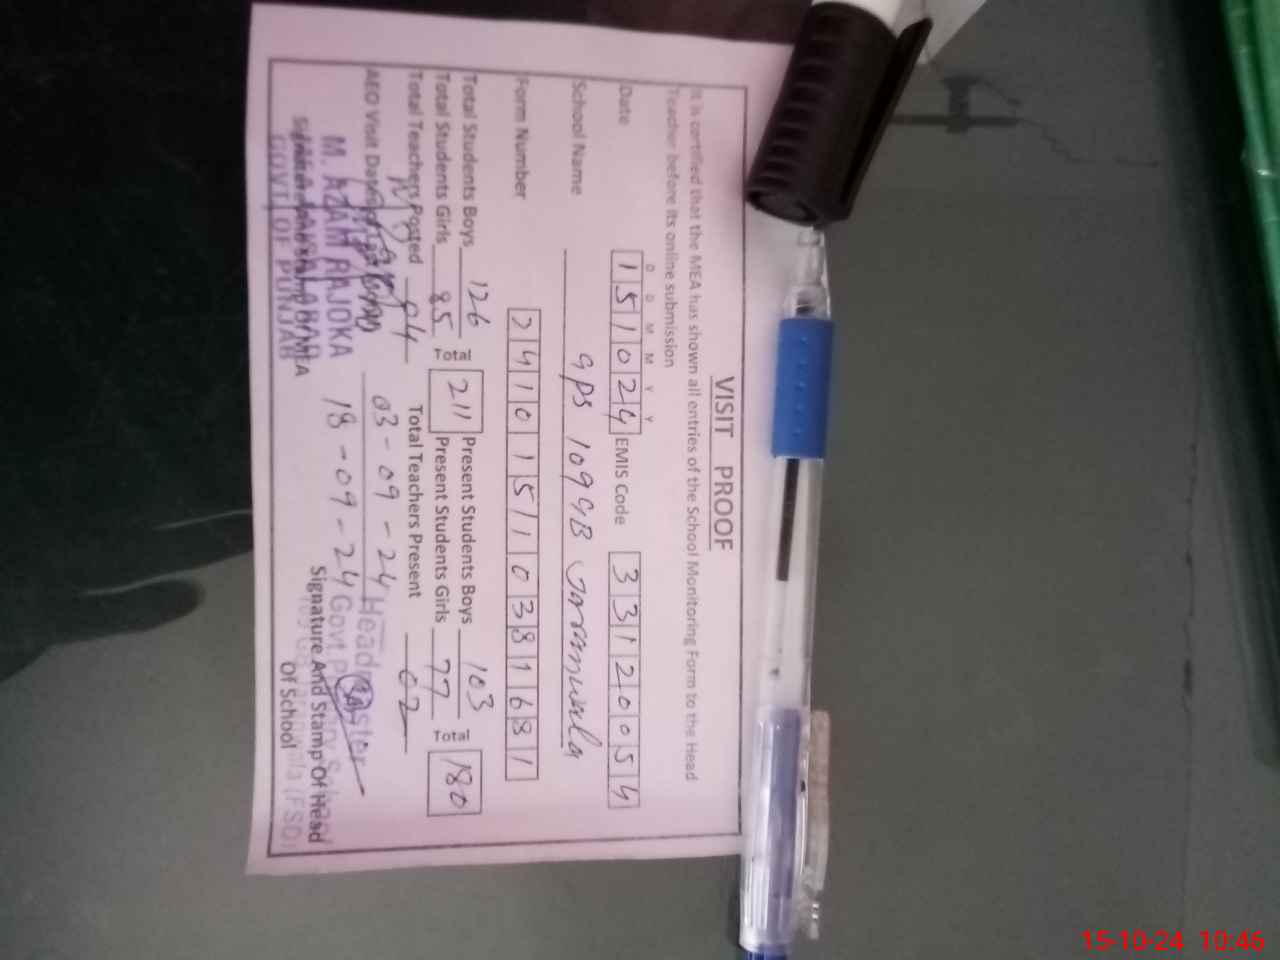 VISIT PROOF
It is certified that the MEA has shown all entries of the School Monitoring Form to the Head
Teacher before its online submission
D D M M Y Y
Date 151024 EMIS Code 33120054
School Name gps 109 GB
Form Number 24101511038 1681
Total Students Boys 126 Total 211 Present Students Boys 103 Total 180
Total Students Girls 85 Present Students Girls 77
Total Teachers Posted 04 Total Teachers Present 02
AEO Visit 03-09-24
18-09-24
M. AZAM RAJOKA
GOVT. OF PUNJAB
Headmaster
Govt
Signature And Stamp Of Head
Of School
(FSD)
15-10-24 10:46